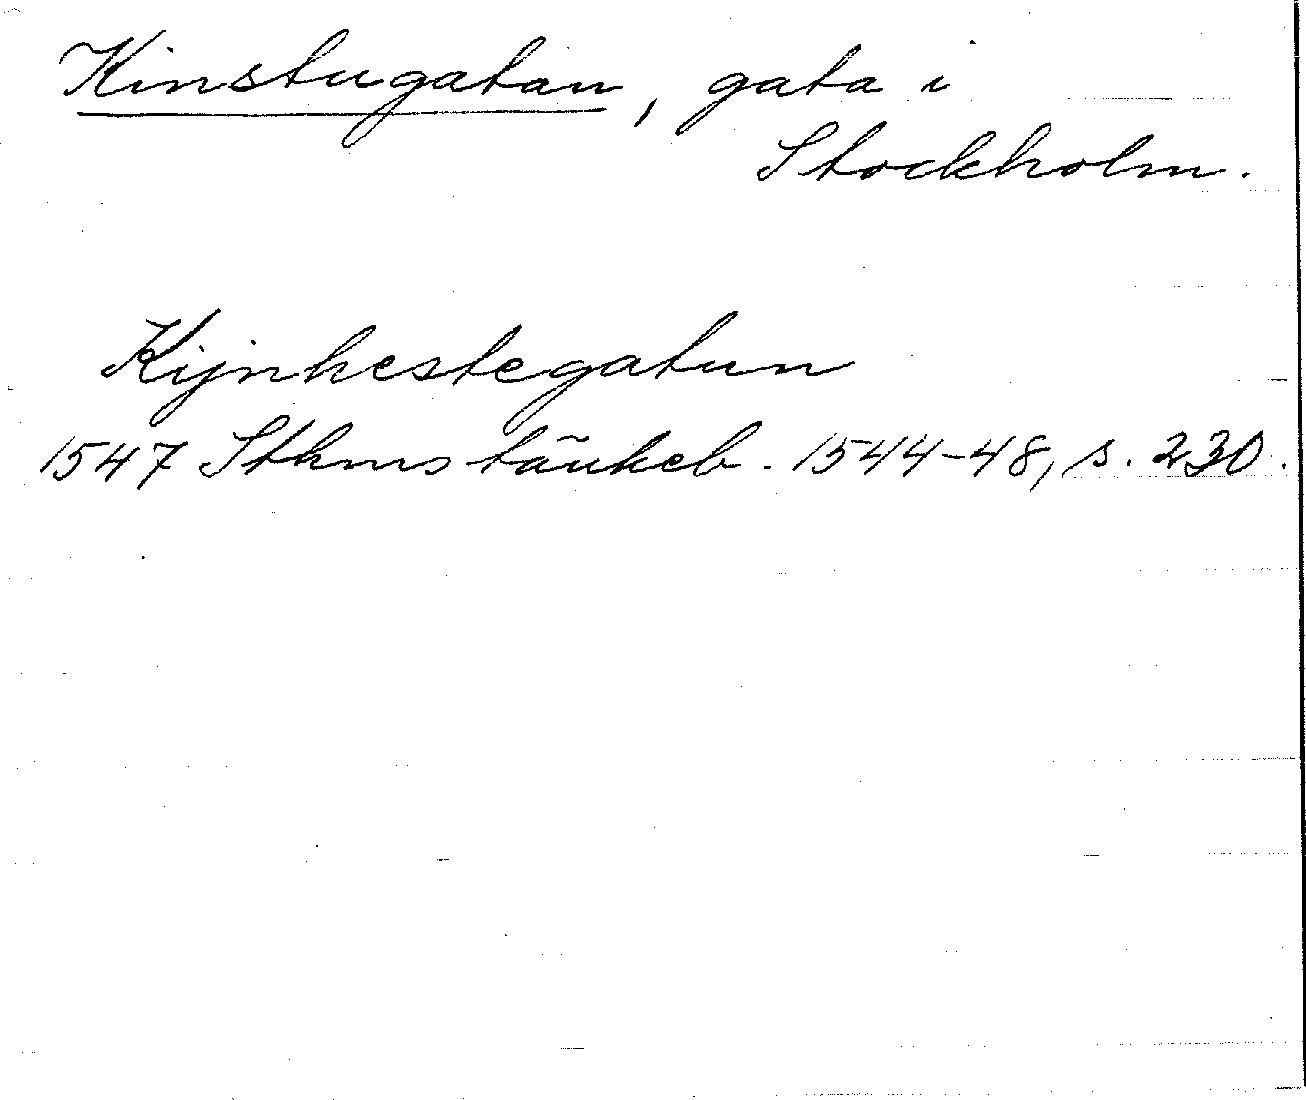 Kinstugatan, gata i
Stockholm.
Kijnhestegatun
1547 Sthms tänkeb. 1544-48, s. 230.